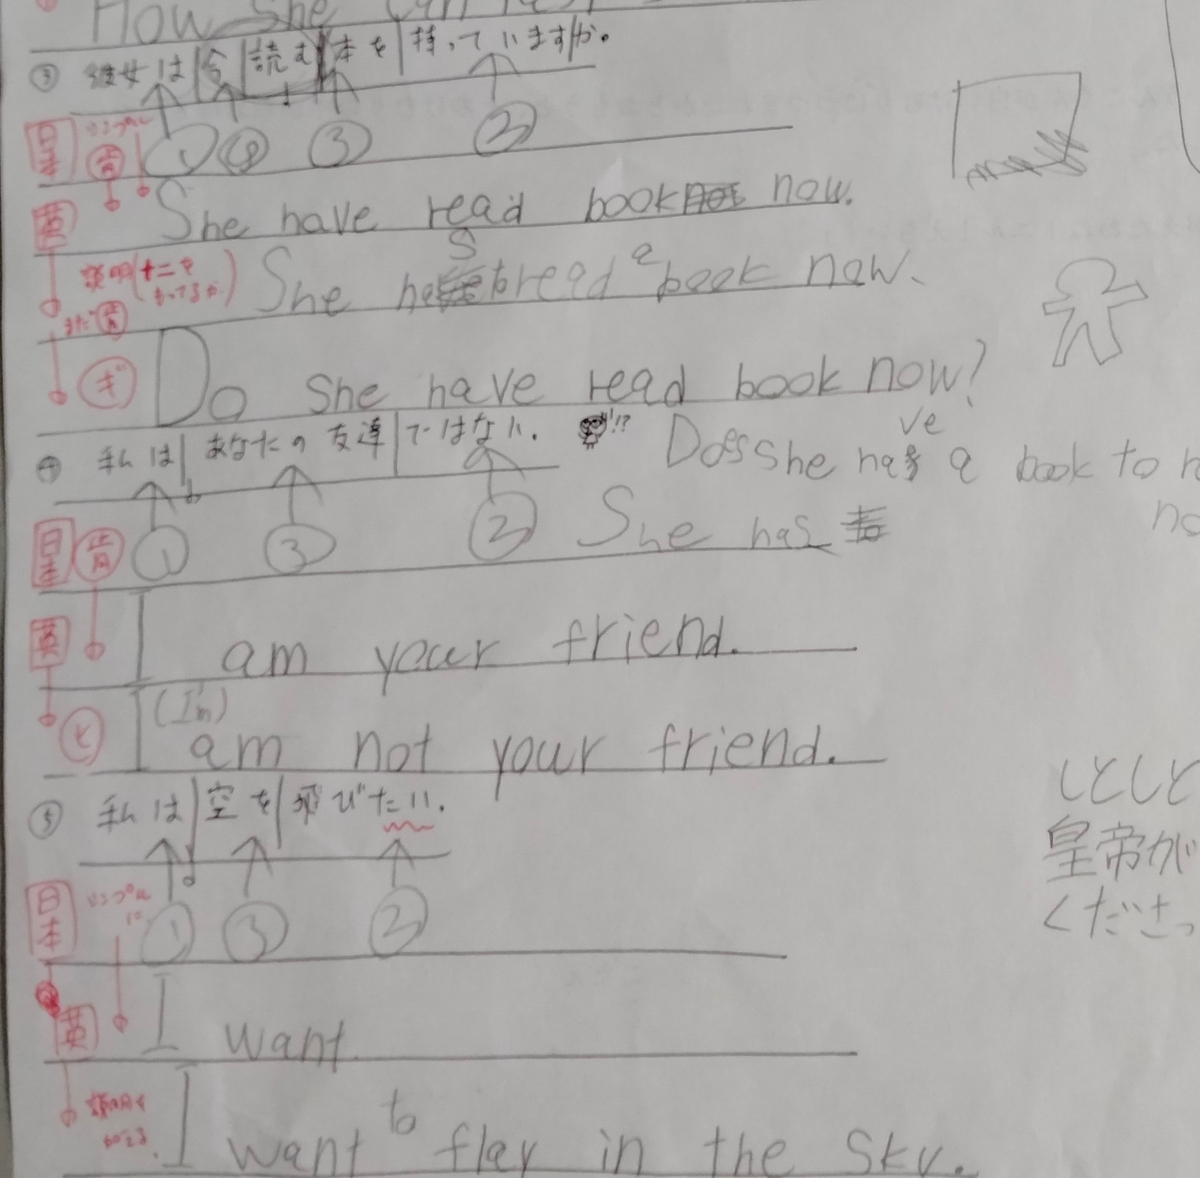 How she can
③ 彼女は|今|読む|本を|持っていますか。
日本 肯 シンプル ① ④ ③ ②
英 She have read book now.
説明(+ニを もってるか) She has read a book now.
まだ肯
ギ Do she have read book now?
④ 私は|あなたの友達|ではない. !?
Does she have a book to
日本 肯 ① ③ ② She has
英 I am your friend.
(I'm)
ヒ I am not your friend.
⑤ 私は|空を|飛びたい.
しとしと
皇帝が
日本 シンプルに ① ③ ② くださっ
英 I want
I want to flay in the sky.